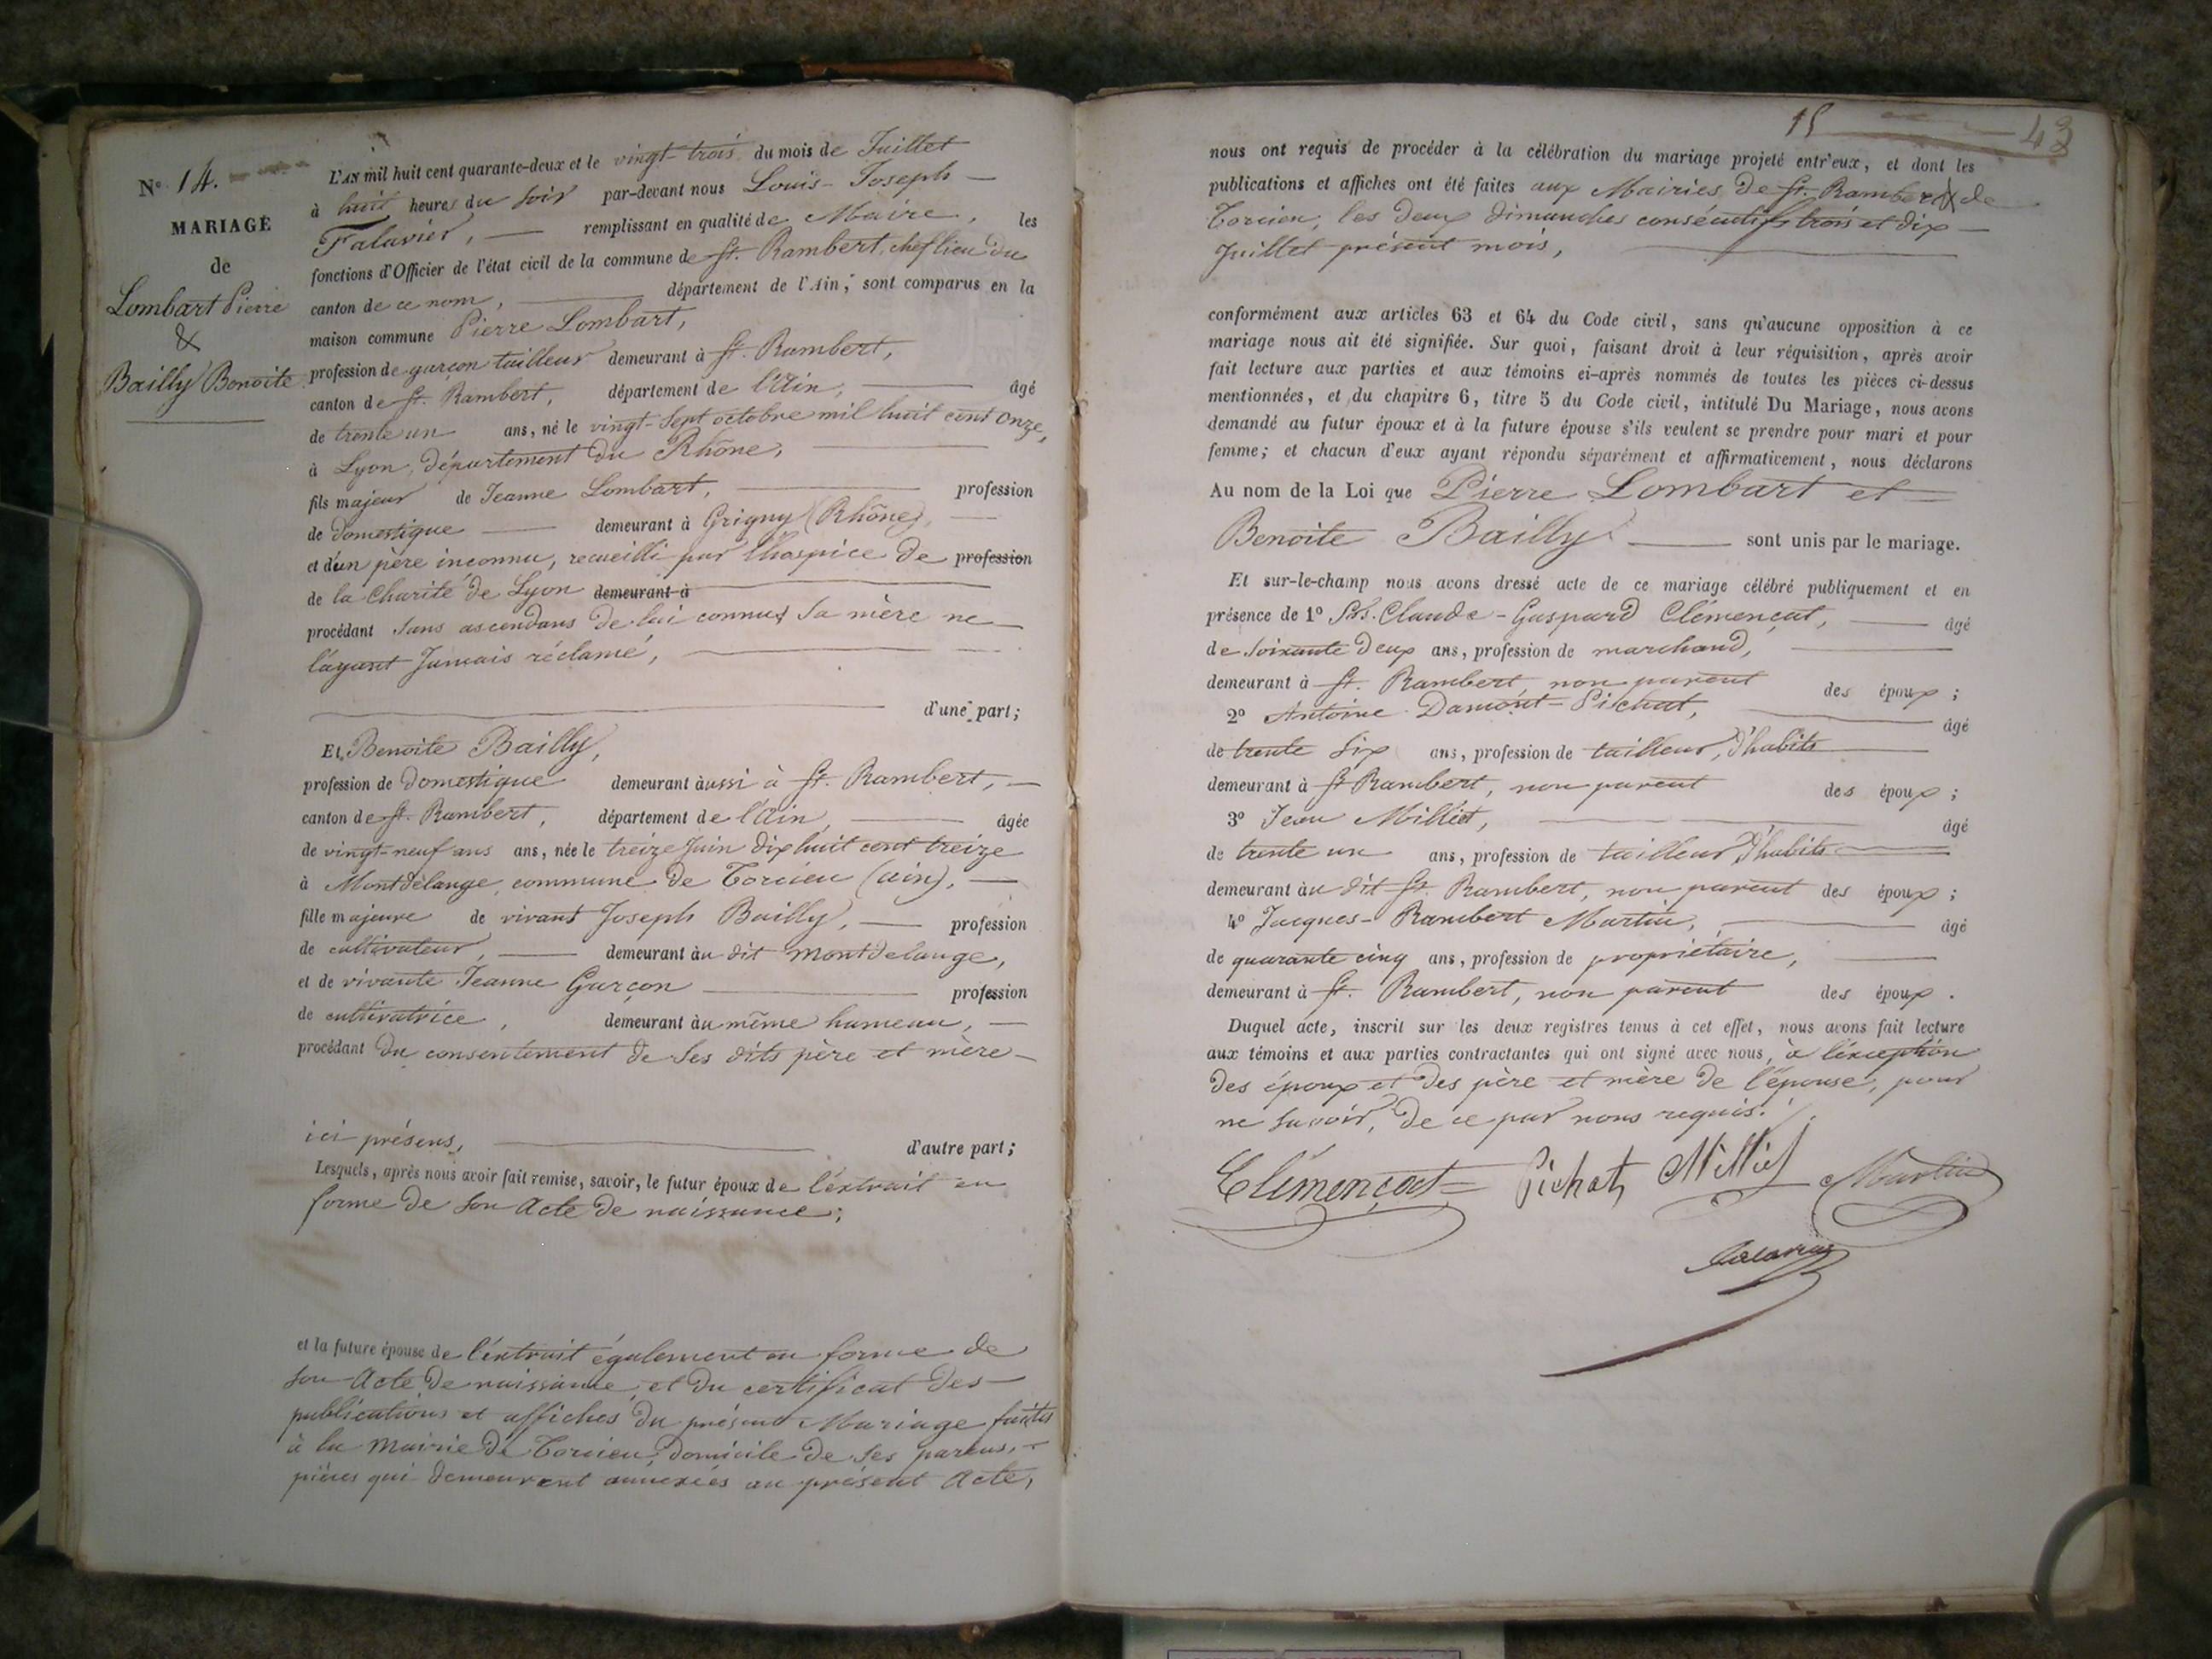 N° 14.
MARIAGE
de
Lombart Pierre
&
Bailly Benoite
L'AN mil huit cent quarante-deux et le vingt-trois du mois de Juillet
à huit heures du soir par-devant nous Louis-Joseph
Falavier, remplissant en qualité de Maire, les
fonctions d'Officier de l'état civil de la commune de St. Rambert, chef lieu du
canton de ce nom, département de l'Ain, sont comparus en la
maison commune Pierre Lombart,
profession de garçon tailleur demeurant à St. Rambert,
canton de St. Rambert, département de l'Ain, âgé
de trente un ans, né le vingt-sept octobre mil huit cent onze,
à Lyon, département du Rhône,
fils majeur de Jeanne Lombart, profession
de domestique demeurant à Grigny (Rhône),
et d'un père inconnu, recueilli par l'hospice de profession
de la Charité de Lyon demeurant à
procédant sans ascendans de lui connus sa mère ne
l'ayant Jamais réclamé,
d'une part;
Et Benoite Bailly,
profession de domestique demeurant aussi à St. Rambert,
canton de St. Rambert, département de l'Ain, âgée
de vingt-neuf ans ans, née le treize Juin dix huit cent treize
à Montdelange, commune de Torcieu (ain),
fille majeure de vivant Joseph Bailly, profession
de cultivateur, demeurant au dit Montdelange,
et de vivante Jeanne Garçon profession
de cultivatrice, demeurant au même hameau,
procédant du consentement de ses dits père et mère
ici présens, d'autre part;
Lesquels, après nous avoir fait remise, savoir, le futur époux de l'extrait en
forme de son Acte de naissance;
et la future épouse de l'extrait également en forme de
son Acte de naissance, et du certificat des
publications et affiches du présent Mariage faites
à la Mairie de Torcieu, domicile de ses parens,
pièces qui demeurent annexées au présent Acte,
15 43
nous ont requis de procéder à la célébration du mariage projeté entr'eux, et dont les
publications et affiches ont été faites aux Mairies de St. Rambert & de
Torcieu, les deux dimanches consécutifs trois et dix
Juillet présent mois,
conformément aux articles 63 et 64 du Code civil, sans qu'aucune opposition à ce
mariage nous ait été signifiée. Sur quoi, faisant droit à leur réquisition, après avoir
fait lecture aux parties et aux témoins ci-après nommés de toutes les pièces ci-dessus
mentionnées, et du chapitre 6, titre 5 du Code civil, intitulé Du Mariage, nous avons
demandé au futur époux et à la future épouse s'ils veulent se prendre pour mari et pour
femme; et chacun d'eux ayant répondu séparément et affirmativement, nous déclarons
Au nom de la Loi que Pierre Lombart et
Benoite Bailly sont unis par le mariage.
Et sur-le-champ nous avons dressé acte de ce mariage célébré publiquement et en
présence de 1° Claude-Gaspard Clémençat, âgé
de soixante deux ans, profession de marchand,
demeurant à St. Rambert non parent des époux;
2° Antoine Damont-Pichat, âgé
de trente six ans, profession de tailleur d'habits
demeurant à St Rambert, non parent des époux;
3° Jean Milliet, âgé
de trente un ans, profession de tailleur d'habits
demeurant au dit St. Rambert, non parent des époux;
4° Jacques-Rambert Martin, âgé
de quarante cinq ans, profession de propriétaire,
demeurant à St. Rambert, non parent des époux.
Duquel acte, inscrit sur les deux registres tenus à cet effet, nous avons fait lecture
aux témoins et aux parties contractantes qui ont signé avec nous, à l'exception
des époux et des père et mère de l'épouse, pour
ne savoir, de ce par nous requis.
Clémençat Pichat Milliet Martin
Falavier